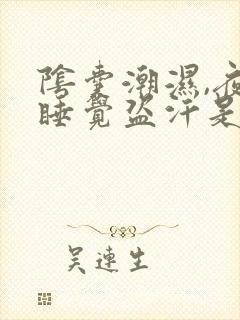 陰囊潮濕,夜
睡覺盜汗是
吴連生